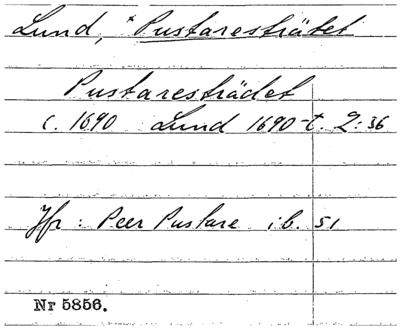 Lund, * Pustaresträtet
Pustaresträdet
c. 1690 Lund 1690-t. 2:36
Jfr : Peer Pustare ib. 51
Nr 5856.